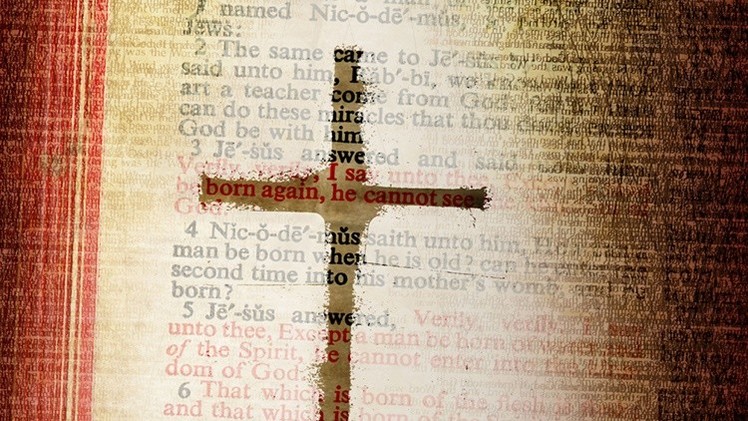 named Nic-ŏ-dē′-mŭs,
Jews:
2 The same came to Jē′-
said unto him, Răb′-bī, we
art a teacher come from God:
can do these miracles that thou
God be with him
3 Jē′-ṡŭs answered and said
Verily, verily, I say unto thee,
born again, he cannot see
God.
4 Nic-ŏ-dē′-mŭs saith unto him,
man be born when he is old? can
second time into his mother's womb, and
born?
5 Jē′-ṡŭs answered, Verily, verily, I
unto thee, Except a man be born of
of the Spirit, he cannot enter into the
dom of God.
6 That which is born of the flesh is
and that which is born of the